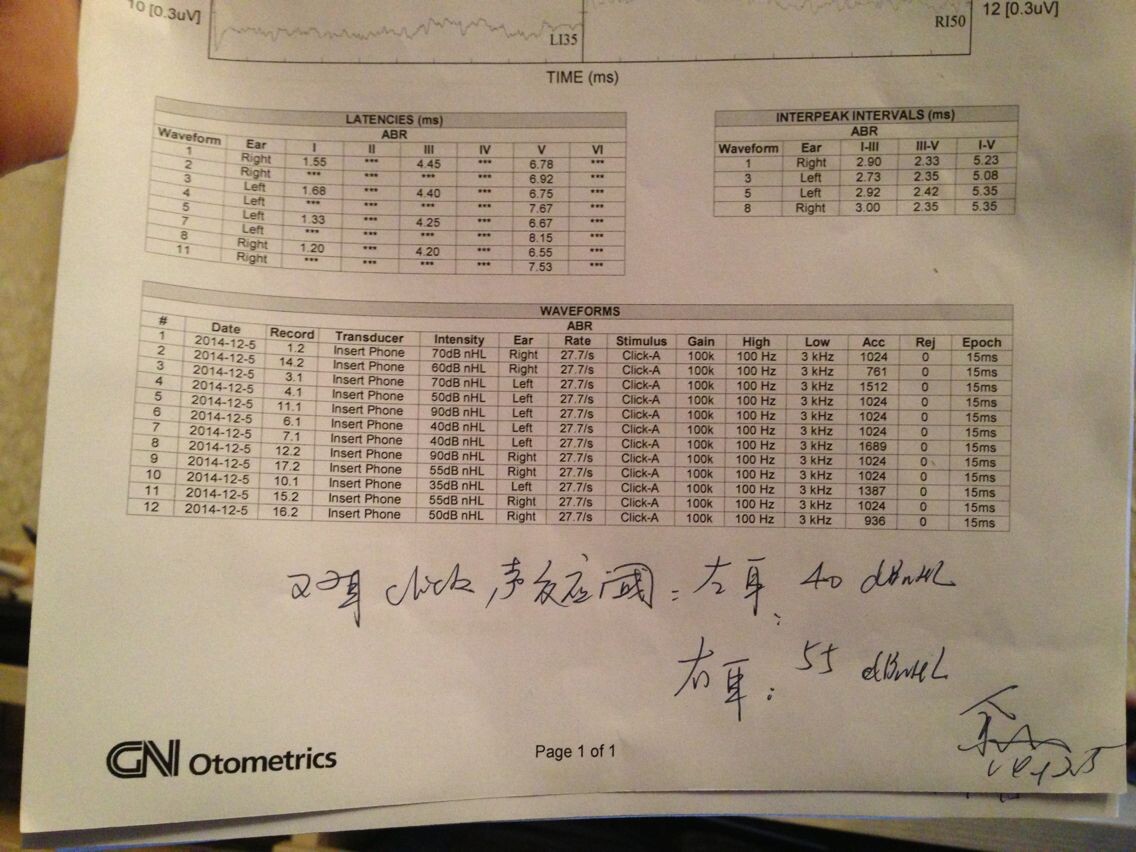 10 [0.3uV]
LI35
RI50
12 [0.3uV]
TIME (ms)
LATENCIES (ms)
ABR
Waveform Ear I II III IV V VI
1 Right 1.55 *** 4.45 *** 6.78 ***
2 Right *** *** *** *** 6.92 ***
3 Left 1.68 *** 4.40 *** 6.75 ***
4 Left *** *** *** *** 7.67 ***
5 Left 1.33 *** 4.25 *** 6.67 ***
7 Left *** *** *** *** 8.15 ***
8 Right 1.20 *** 4.20 *** 6.55 ***
11 Right *** *** *** *** 7.53 ***
INTERPEAK INTERVALS (ms)
ABR
Waveform Ear I-III III-V I-V
1 Right 2.90 2.33 5.23
3 Left 2.73 2.35 5.08
5 Left 2.92 2.42 5.35
8 Right 3.00 2.35 5.35
WAVEFORMS
ABR
# Date Record Transducer Intensity Ear Rate Stimulus Gain High Low Acc Rej Epoch
1 2014-12-5 1.2 Insert Phone 70dB nHL Right 27.7/s Click-A 100k 100 Hz 3 kHz 1024 0 15ms
2 2014-12-5 14.2 Insert Phone 60dB nHL Right 27.7/s Click-A 100k 100 Hz 3 kHz 761 0 15ms
3 2014-12-5 3.1 Insert Phone 70dB nHL Left 27.7/s Click-A 100k 100 Hz 3 kHz 1512 0 15ms
4 2014-12-5 4.1 Insert Phone 50dB nHL Left 27.7/s Click-A 100k 100 Hz 3 kHz 1024 0 15ms
5 2014-12-5 11.1 Insert Phone 90dB nHL Left 27.7/s Click-A 100k 100 Hz 3 kHz 1024 0 15ms
6 2014-12-5 6.1 Insert Phone 40dB nHL Left 27.7/s Click-A 100k 100 Hz 3 kHz 1024 0 15ms
7 2014-12-5 7.1 Insert Phone 40dB nHL Left 27.7/s Click-A 100k 100 Hz 3 kHz 1689 0 15ms
8 2014-12-5 12.2 Insert Phone 90dB nHL Right 27.7/s Click-A 100k 100 Hz 3 kHz 1024 0 15ms
9 2014-12-5 17.2 Insert Phone 55dB nHL Right 27.7/s Click-A 100k 100 Hz 3 kHz 1024 0 15ms
10 2014-12-5 10.1 Insert Phone 35dB nHL Left 27.7/s Click-A 100k 100 Hz 3 kHz 1387 0 15ms
11 2014-12-5 15.2 Insert Phone 55dB nHL Right 27.7/s Click-A 100k 100 Hz 3 kHz 1024 0 15ms
12 2014-12-5 16.2 Insert Phone 50dB nHL Right 27.7/s Click-A 100k 100 Hz 3 kHz 936 0 15ms
双耳 click 声反应阈：左耳：40 dBnHL
右耳：55 dBnHL
GN Otometrics
Page 1 of 1